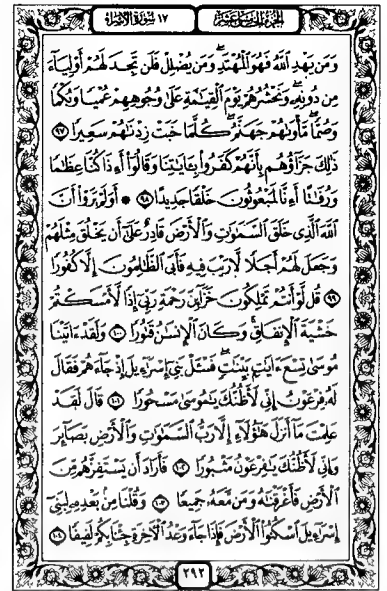 الجزء الخامس عشر ١٧ سورة الإسراء
وَمَن يَهْدِ ٱللَّهُ فَهُوَ ٱلْمُهْتَدِ ۖ وَمَن يُضْلِلْ فَلَن تَجِدَ لَهُمْ أَوْلِيَآءَ
مِن دُونِهِۦ ۖ وَنَحْشُرُهُمْ يَوْمَ ٱلْقِيَٰمَةِ عَلَىٰ وُجُوهِهِمْ عُمْيًا وَبُكْمًا
وَصُمًّا ۖ مَّأْوَىٰهُمْ جَهَنَّمُ ۖ كُلَّمَا خَبَتْ زِدْنَٰهُمْ سَعِيرًا ٩٧
ذَٰلِكَ جَزَآؤُهُم بِأَنَّهُمْ كَفَرُوا۟ بِـَٔايَٰتِنَا وَقَالُوٓا۟ أَءِذَا كُنَّا عِظَٰمًا
وَرُفَٰتًا أَءِنَّا لَمَبْعُوثُونَ خَلْقًا جَدِيدًا ٩٨ ۞ أَوَلَمْ يَرَوْا۟ أَنَّ
ٱللَّهَ ٱلَّذِى خَلَقَ ٱلسَّمَٰوَٰتِ وَٱلْأَرْضَ قَادِرٌ عَلَىٰٓ أَن يَخْلُقَ مِثْلَهُمْ
وَجَعَلَ لَهُمْ أَجَلًا لَّا رَيْبَ فِيهِ فَأَبَى ٱلظَّٰلِمُونَ إِلَّا كُفُورًا
٩٩ قُل لَّوْ أَنتُمْ تَمْلِكُونَ خَزَآئِنَ رَحْمَةِ رَبِّىٓ إِذًا لَّأَمْسَكْتُمْ
خَشْيَةَ ٱلْإِنفَاقِ ۚ وَكَانَ ٱلْإِنسَٰنُ قَتُورًا ١٠٠ وَلَقَدْ ءَاتَيْنَا
مُوسَىٰ تِسْعَ ءَايَٰتٍۭ بَيِّنَٰتٍ ۖ فَسْـَٔلْ بَنِىٓ إِسْرَٰٓءِيلَ إِذْ جَآءَهُمْ فَقَالَ
لَهُۥ فِرْعَوْنُ إِنِّى لَأَظُنُّكَ يَٰمُوسَىٰ مَسْحُورًا ١٠١ قَالَ لَقَدْ
عَلِمْتَ مَآ أَنزَلَ هَٰٓؤُلَآءِ إِلَّا رَبُّ ٱلسَّمَٰوَٰتِ وَٱلْأَرْضِ بَصَآئِرَ
وَإِنِّى لَأَظُنُّكَ يَٰفِرْعَوْنُ مَثْبُورًا ١٠٢ فَأَرَادَ أَن يَسْتَفِزَّهُم مِّنَ
ٱلْأَرْضِ فَأَغْرَقْنَٰهُ وَمَن مَّعَهُۥ جَمِيعًا ١٠٣ وَقُلْنَا مِنۢ بَعْدِهِۦ لِبَنِىٓ
إِسْرَٰٓءِيلَ ٱسْكُنُوا۟ ٱلْأَرْضَ فَإِذَا جَآءَ وَعْدُ ٱلْـَٔاخِرَةِ جِئْنَا بِكُمْ لَفِيفًا ١٠٤
٢٩٢